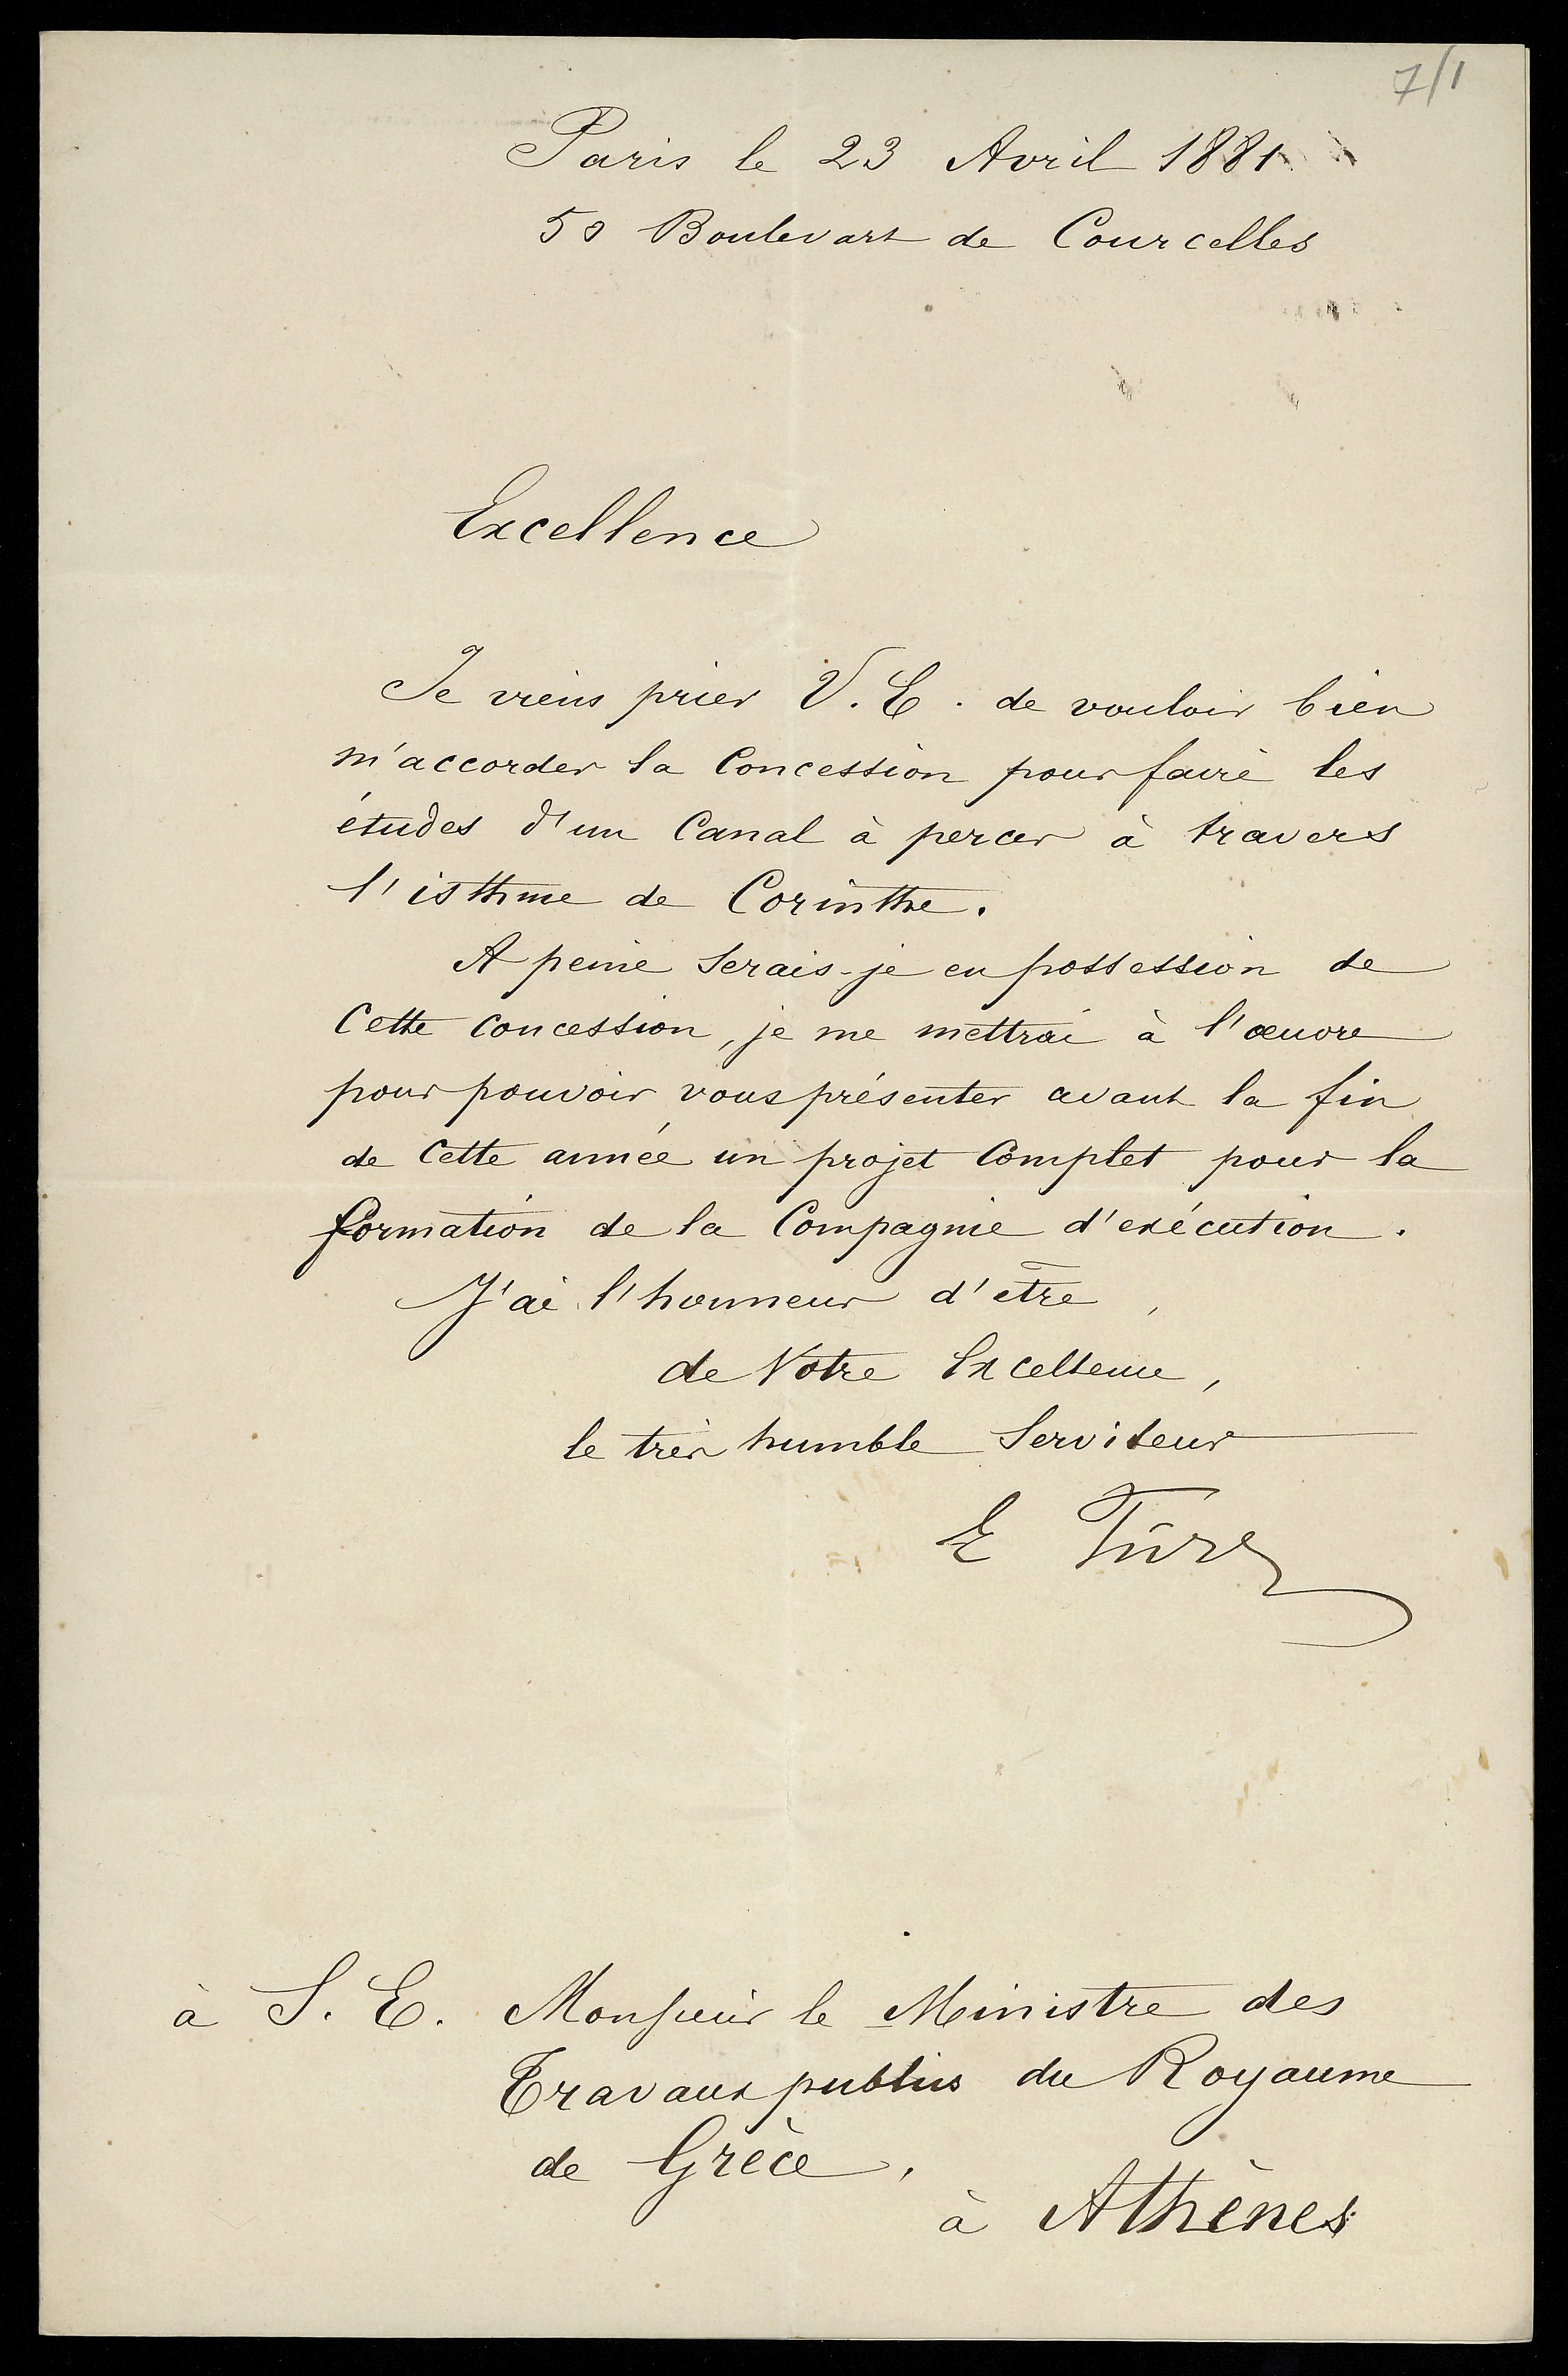 7/1
Paris le 23 Avril 1881
50 Boulevart de Courcelles
Excellence
Je viens prier V. E. de vouloir bien
m'accorder la Concession pour faire les
études d'un Canal à percer à travers
l'isthme de Corinthe.
A peine serais-je en possession de
Cette concession, je me mettrai à l'œuvre
pour pouvoir vous présenter avant la fin
de Cette année un projet Complet pour la
formation de la Compagnie d'exécution.
J'ai l'honneur d'etre,
de Votre Excellence,
le très humble Serviteur
E Türr
à S. E. Monsieur le Ministre des
Travaux publics du Royaume
de Grèce,
à Athènes